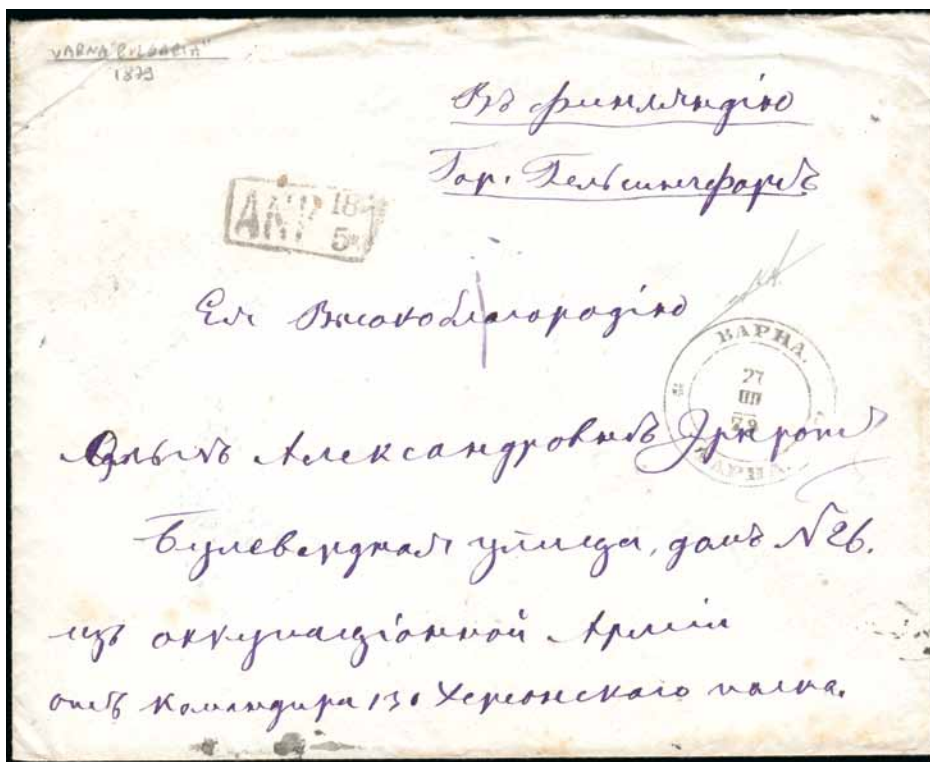 VARNA "BULGARIA"
1879
Въ Финляндію
Гор. Гельсингфорсъ
ANK 18
5
Ея Высокоблагородію
ВАРНА.
27
III
79
ВАРНА.
Александровнѣ Эрнротъ
Булевардная улица, домъ №26.
изъ оккупаціонной Арміи
отъ Командира 130 Херсонскаго полка.